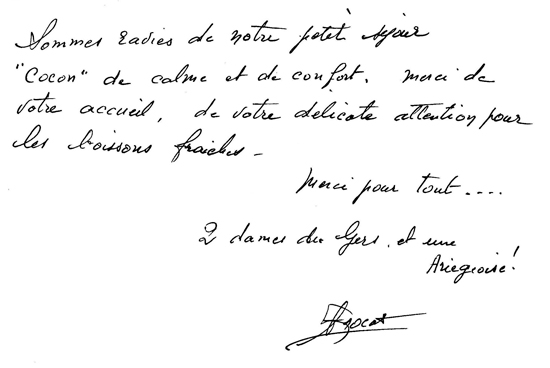 Sommes ravies de notre petit séjour
"Cocon" de calme et de confort. Merci de
votre accueil, de votre délicate attention pour
les boissons fraiches -
Merci pour tout....
2 dames du Gers, et une
Ariegeoise!